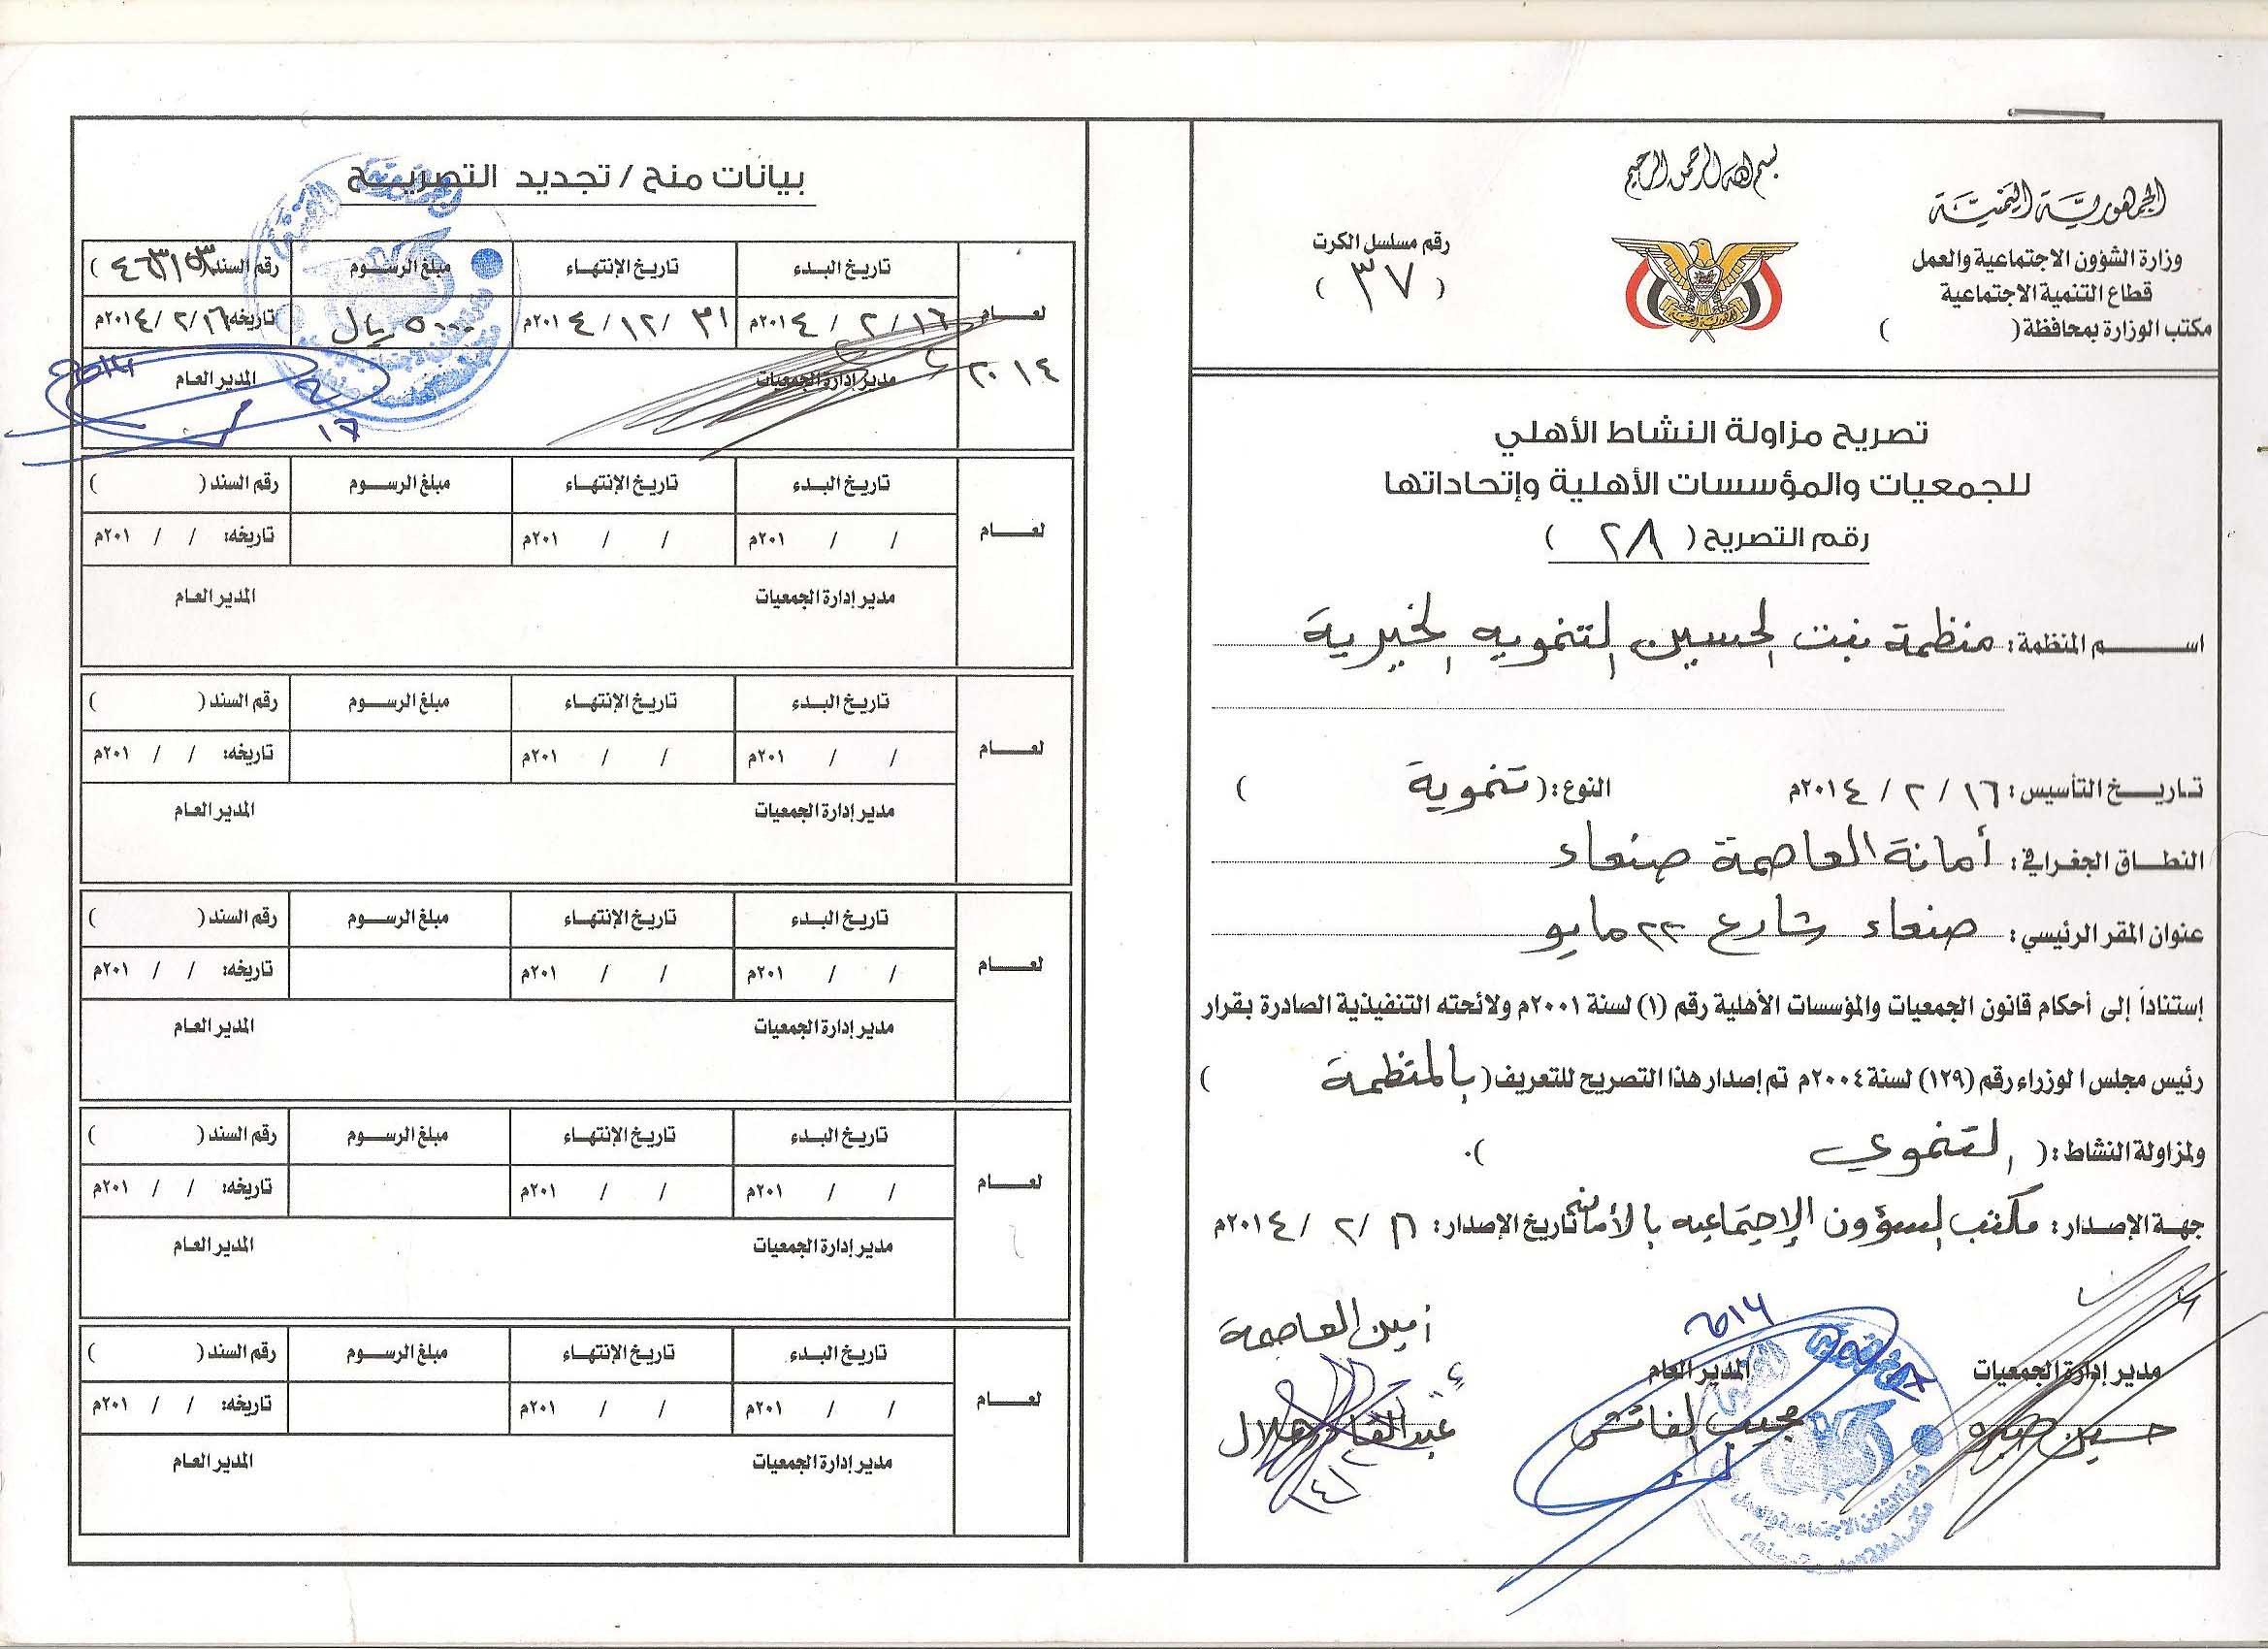 بسم الله الرحمن الرحيم
الجمهورية اليمنية
وزارة الشؤون الاجتماعية والعمل
قطاع التنمية الاجتماعية
مكتب الوزارة بمحافظة ( )
رقم مسلسل الكرت
( ٣٧ )
تصريح مزاولة النشاط الأهلي
للجمعيات والمؤسسات الأهلية وإتحاداتها
رقم التصريح ( ٢٨ )
اسم المنظمة: منظمة بنت الحسين التنمويه الخيرية
تاريخ التأسيس: ١٦ / ٢ / ٢٠١٤م النوع: ( تنموية )
النطاق الجغرافي: أمانة العاصمة صنعاء
عنوان المقر الرئيسي: صنعاء شارع ٢٢ مايو
إستناداً إلى أحكام قانون الجمعيات والمؤسسات الأهلية رقم (١) لسنة ٢٠٠١م ولائحته التنفيذية الصادرة بقرار
رئيس مجلس الوزراء رقم (١٢٩) لسنة ٢٠٠٤م تم إصدار هذا التصريح للتعريف ( بالمنظمة )
ولمزاولة النشاط: ( التنموي ).
جهة الإصدار: مكتب الشؤون الإجتماعيه بالأمانة تاريخ الإصدار: ١٦ / ٢ / ٢٠١٤م
مدير إدارة الجمعيات المدير العام أمين العاصمة
حسين مجيب الفاتش عبدالقادر هلال
بيانات منح / تجديد التصريح
لعام ٢٠١٤
تاريخ البدء تاريخ الإنتهاء مبلغ الرسوم رقم السند ( )
١٦ / ٢ / ٢٠١٤م ٣١ / ١٢ / ٢٠١٤م ٥٠٠٠ ريال تاريخه: ١٦ / ٢ / ٢٠١٤م
مدير إدارة الجمعيات المدير العام
لعام
تاريخ البدء تاريخ الإنتهاء مبلغ الرسوم رقم السند ( )
/ / ٢٠١م / / ٢٠١م تاريخه: / / ٢٠١م
مدير إدارة الجمعيات المدير العام
لعام
تاريخ البدء تاريخ الإنتهاء مبلغ الرسوم رقم السند ( )
/ / ٢٠١م / / ٢٠١م تاريخه: / / ٢٠١م
مدير إدارة الجمعيات المدير العام
لعام
تاريخ البدء تاريخ الإنتهاء مبلغ الرسوم رقم السند ( )
/ / ٢٠١م / / ٢٠١م تاريخه: / / ٢٠١م
مدير إدارة الجمعيات المدير العام
لعام
تاريخ البدء تاريخ الإنتهاء مبلغ الرسوم رقم السند ( )
/ / ٢٠١م / / ٢٠١م تاريخه: / / ٢٠١م
مدير إدارة الجمعيات المدير العام
لعام
تاريخ البدء تاريخ الإنتهاء مبلغ الرسوم رقم السند ( )
/ / ٢٠١م / / ٢٠١م تاريخه: / / ٢٠١م
مدير إدارة الجمعيات المدير العام